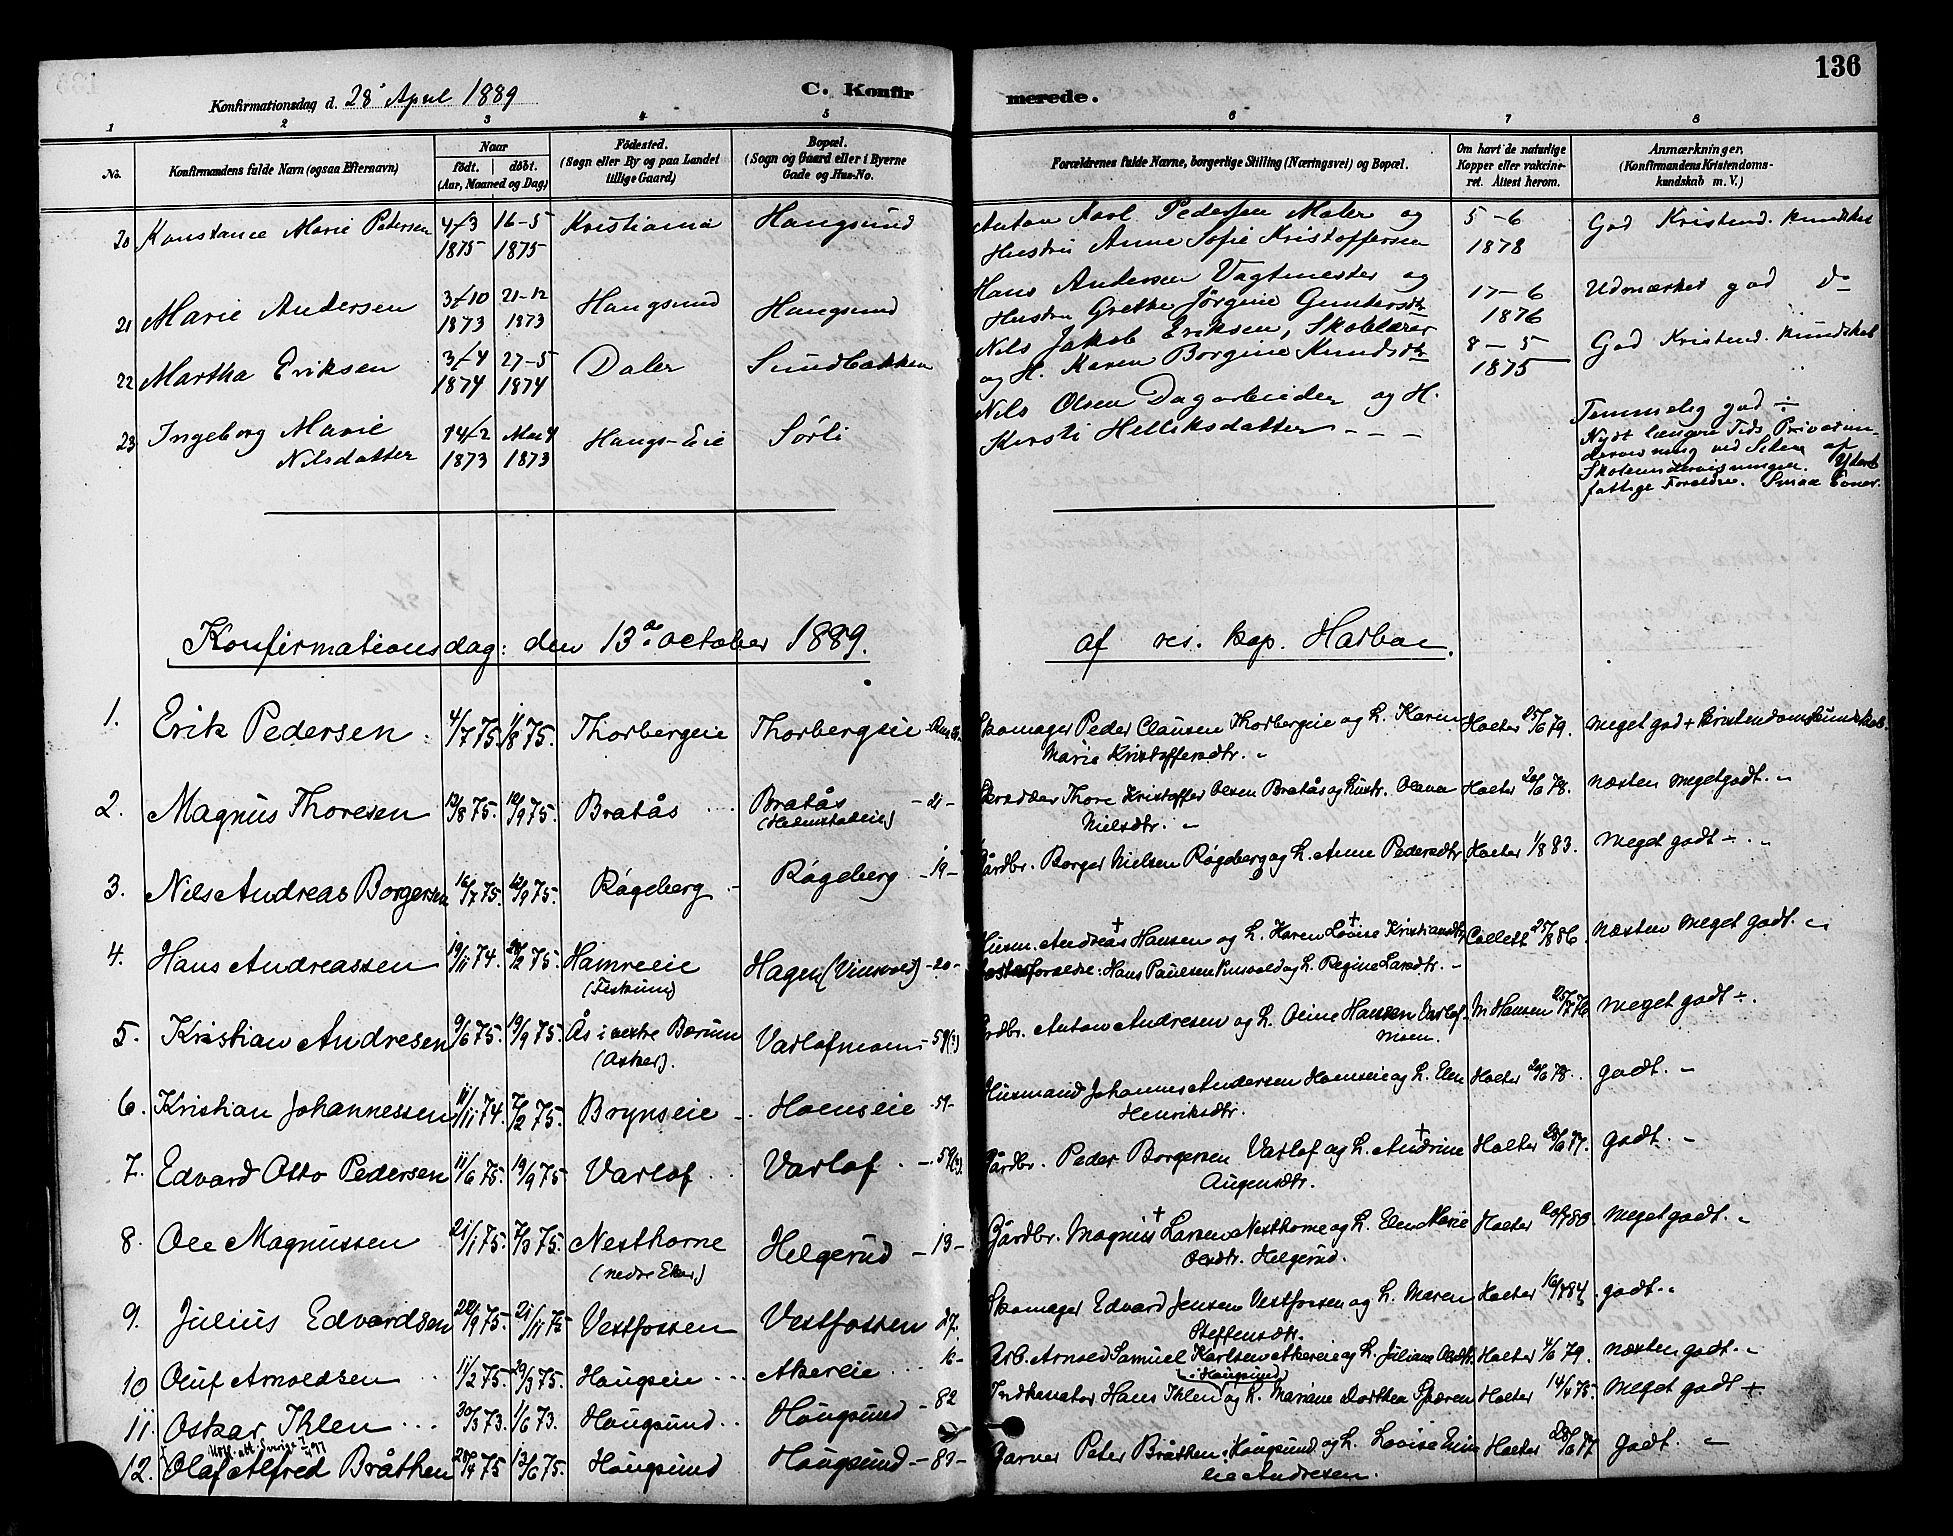 136
Konfirmationsdag d. 28de April 1889
C. Konfirmerede.
1 2 3 4 5 6 7 8
No. Konfirmandens fulde Navn (ogsaa Efternavn) Naar födt. döbt. (Aar, Maaned og Dag) Födested. (Sogn eller By og paa Landet tillige Gaard) Bopæl. (Sogn og Gaard eller i Byerne Gade og Hus-No. Forældrenes fulde Navne, borgerlige Stilling (Næringsvei) og Bopæl. Om havt de naturlige Kopper eller vakcineret. Attest herom. Anmærkninger, (Konfirmandens Kristendomskundskab m. V.)
20 Konstance Marie Petersen 4/3 1875 16-5 1875 Kristiania Hougsund Anton Karl Pedersen Maler og 5-6 1878 God Kristend. kundskab
Hustru Anne Sofie Kristoffersen
21 Marie Andersen 3/10 1873 21-12 1873 Hougsund Hougsund Hans Andersen Vagtmester og 17-6 1876 Udmærket god do
Hustru Grethe Jørgine Guntersdtr
22 Martha Eriksen 3/4 1874 27-5 1874 Daler Sundbakken Nils Jakob Eriksen, Skolelærer 8-5 1875 God Kristend. kundskab
og H. Karen Borgine Knudsdtr
23 Ingeborg Marie Nilsdatter 14/2 1873 Mai 4 1873 Hougs-Eie Sørli Nils Olsen Dagarbeider og H.
Kirsti Helliksdatter - - -
Temmelig god ÷
Nydt længere Tids Privatun-
dervisning ved Siden af
Skoleundervisningen. Yderst
fattige Forældre. Smaa Evner.
Konfirmationsdag: den 13de october 1889. af res. kap. Halboe.
1. Erik Pedersen. 4/7 75 1/8 75. Thorbergeie Thorbergeie Skomager Peder Clausen Thorbergeie og h. Karen Holter 25/6 79. meget god + kristendomskundskab.
Marie Kristoffersdtr. "
2. Magnus Thoresen 13/8 75. 12/9 75. Bratås Bratås - 21 - Skrædder Thore Kristoffer Olsen Bratås og hustr. Olava Holter 20/6 78. næsten megetgodt. "
Nielsdtr. "
3. Nils Andreas Borgersen 16/7 75. 12/9 75. Røgeberg Røgeberg - 19 - Gårdbr. Borger Nielsen Røgeberg og h. Anne Pedersdtr Holter 1/8 83. Meget godt ÷ "
4. Hans Andreassen 19/11 74. 75. Hamreie Hagen (Vinsvold) - 20 - Husm. Andreas Hansen og h. Karen Lovise Kristiansdtr. Collett 25/8 86. næsten meget godt. "
(Fiskum) Fosterforældre: Hans Paulsen Vinsvold og h. Regine Larsdtr. "
5. Kristian Andresen 9/6 75. 19/9 75. Ås i vestre Bærum Varlofmoen - 59(3) Grdbr. Anton Andresen og h. Oline Hansen Varlof- M Hansen 25/7 76 meget godt ÷.
(Asker). Moen.
6. Kristian Johannessen 11/11 74. 7/2 75. Brynseie Hoenseie 59- Husmand Johannes Andersen Hoenseie og h. Elen Holter 20/6 78. godt. "
Henriksdtr.
7. Edvard Otto Pedersen 11/6 75. 19/9 75 Varlof Varlof. - 59(3). Gårdbr. Peder Borgersen Varlof og h. Andrine Holter 28/6 77. godt. "
Augensdtr.
8. Ole Magnussen 21/1 75. 7/3 75. Nesthorne Helgerud - 13 - Gårdbr. Magnus Larsen Nesthorne og h. Elen Marie Holter 80. Megetgodt. "
(nedre Eker) Olsdtr. Helgerud.
9. Julius Edvardsen 22/9 75. 21/11 75 Vestfossen Vestfossen 27. Skomager Edvard Jensen Vestfossen og h. Maren Holter 16/7 84. godt. "
Steffensdtr.
10 Oluf Arnoldsen 11/2 75. 29/3 75. Hougseie Akerleie 16- Arb. Arnold Samuel Karlsen Akereie og h. Juliane Olsdtr. Holter 4/6 79. næsten godt. "
11. Oskar Ihlen 30/3 73. 1/6 73. Hougsund Hougsund - 82 Hans Ihlen og h. Mariane Dorthea Spæren Holter 14/4 75. meget godt ÷
Hougsund
12. Olaf Alfred Bråthen 28/4 75 13/6 75. Hougsund Hougsund - 89 - Garver Peter Bråthen, Hougsund og h. Lovise Emi- Holter 28/6 77. godt. "
lie Andresen.